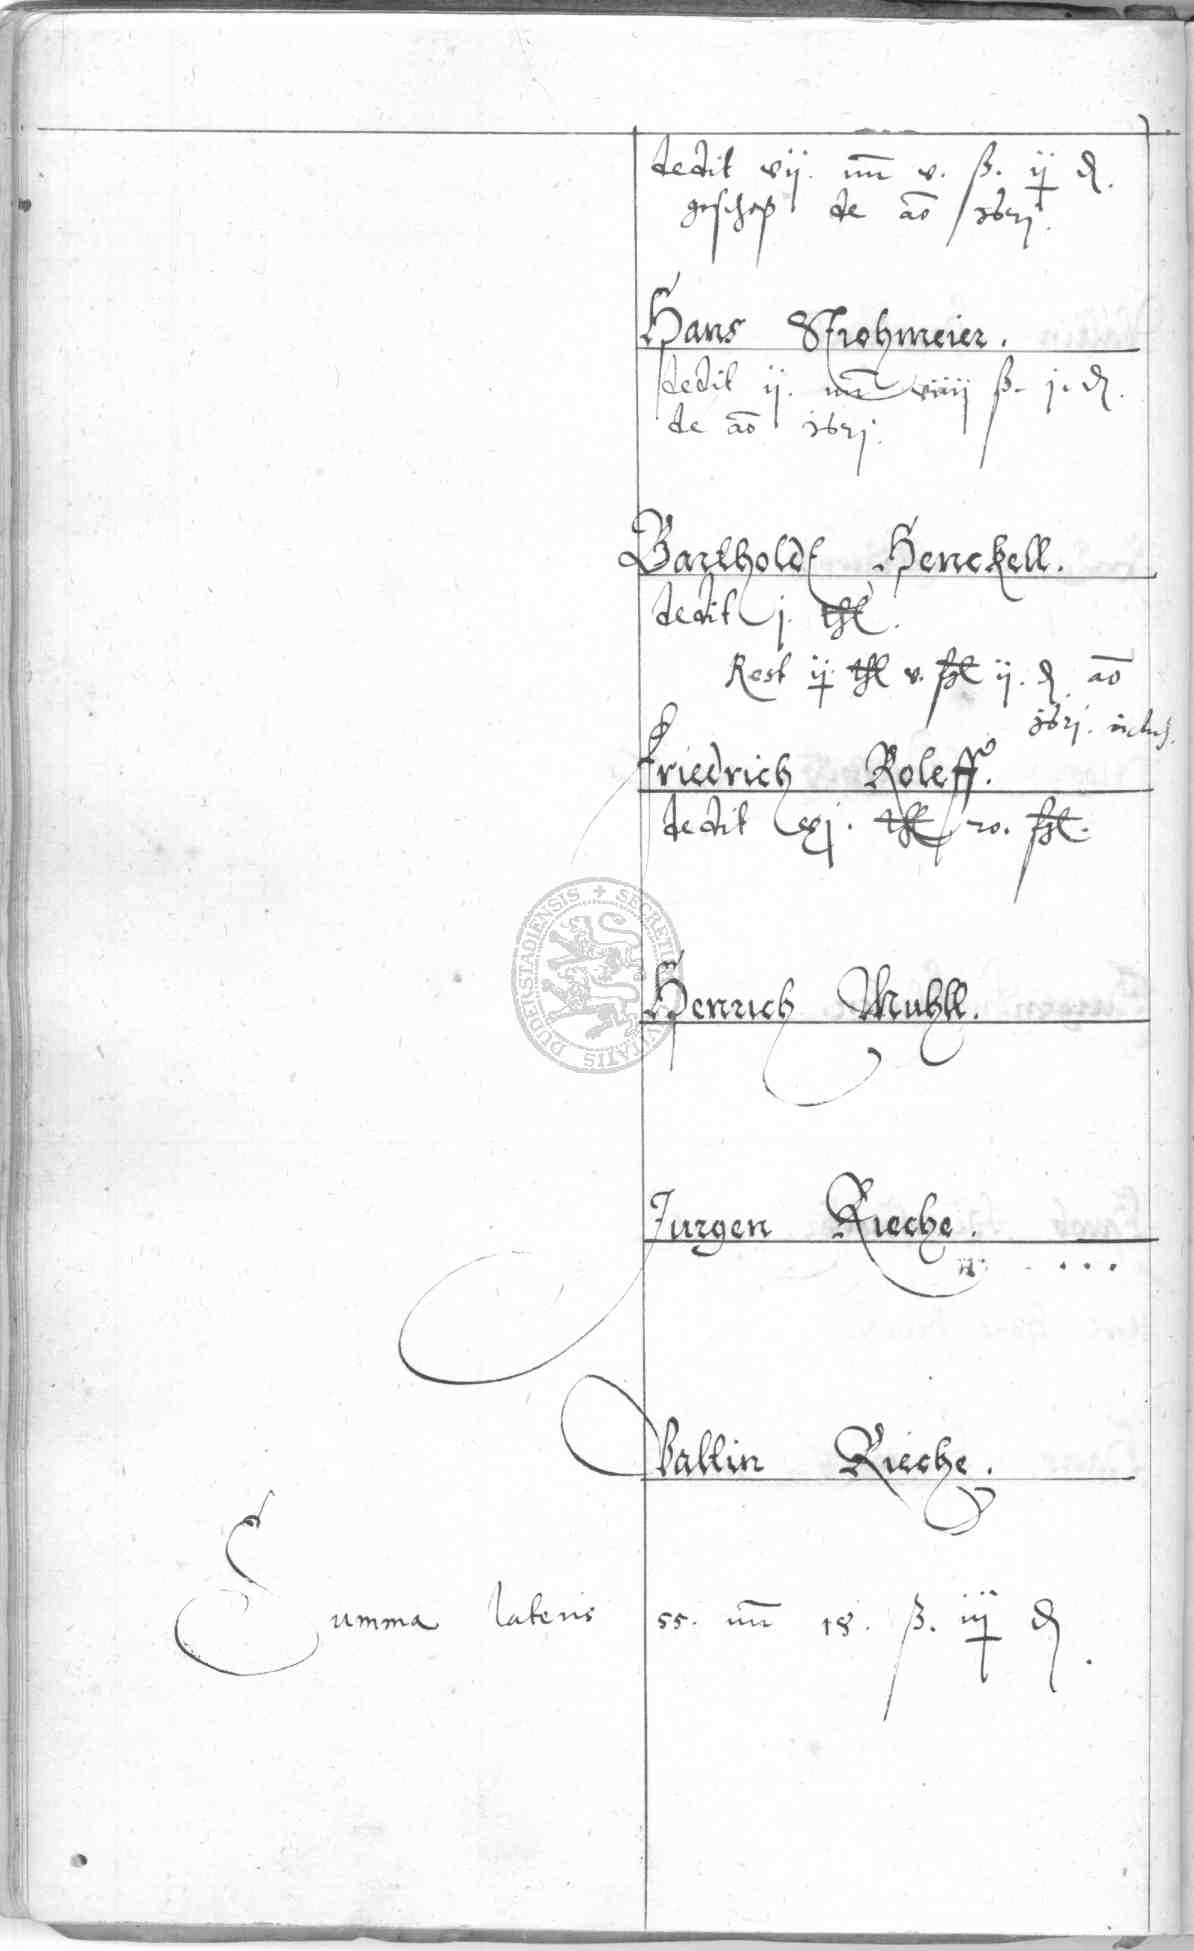 dedit vij. mr v. ß. ij d.
geschoß de ao 1621.
Hans Strohmeier.
dedit ij. mr viiij ß. j. d.
de ao 1621.
Bartholdt Henckell.
dedit j. thl.
Rest ij thl v. ßl ij. d. ao
1621. inclus.
Friedrich Roleff.
dedit thl 20. ßl.
Henrich Muhll.
Jurgen Rieche.
Valtin Rieche.
Summa lateris 55. mr 18. ß. iij d.
DUDERSTADIENSIS + SECRETI